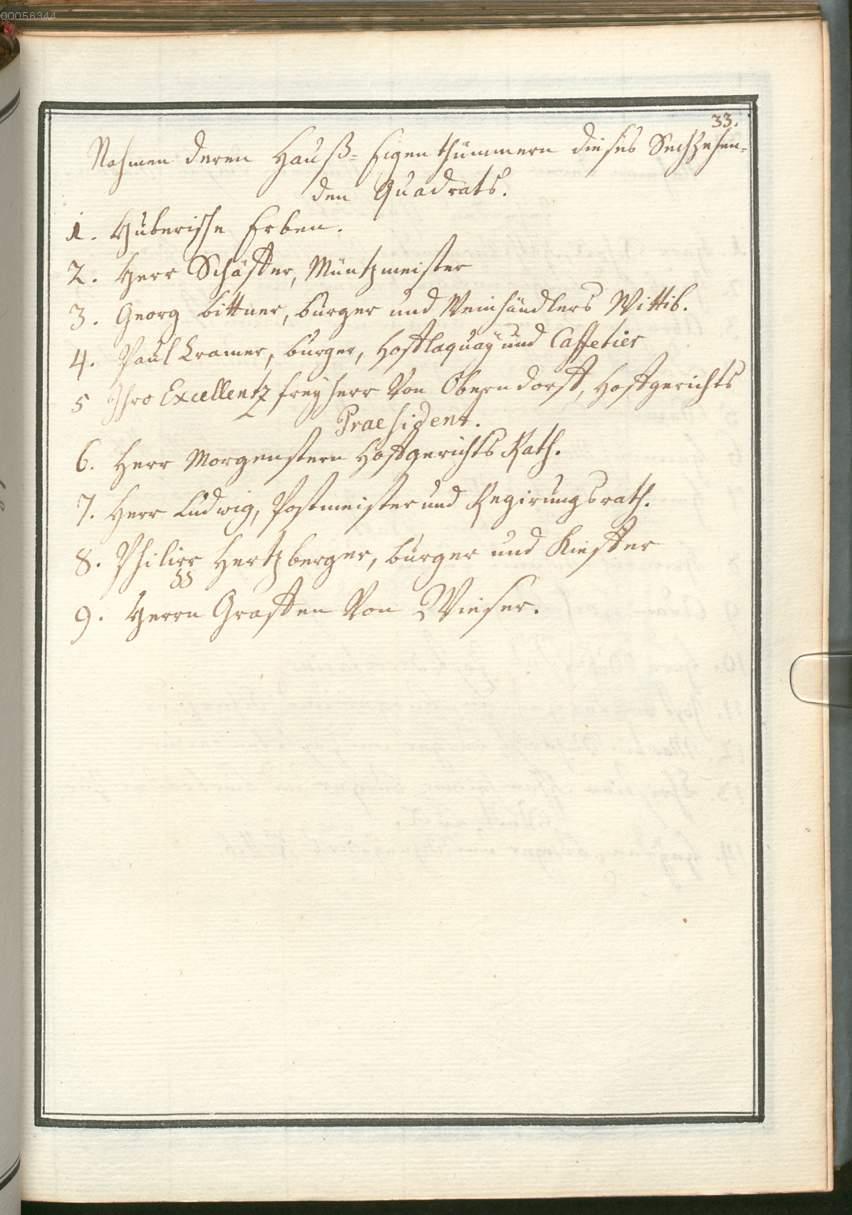 00056344
33.
Nahmen deren Hauß-Eigenthümmern dieses Sechzehen-
den Quadrats.
1. Huberische Erben.
2. Herr Schäffer, Müntzmeister
3. Georg bittner, burger und Weinhändlers Wittib.
4. Paul Kramer, burger, Hofflaquay und Caffetier
5 Ihro Excellentz freyherr Von Oberndorff, Hoffgerichts
Praesident.
6. Herr Morgenstern Hoffgerichts Rath.
7. Herr Ludwig, Postmeister und Regirungsrath.
8. Philipp Hertzberger, burger und Kieffer
9. Herrn Graffen Von Wieser.